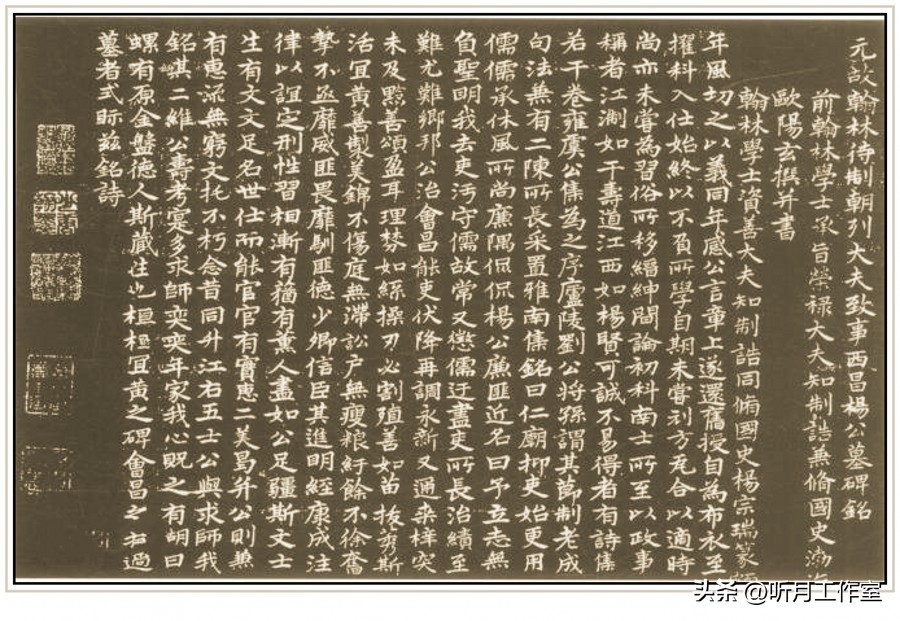 元故翰林待制朝列大夫致事西昌楊公墓碑銘
前翰林學士承旨榮祿大夫知制誥兼脩國史渤海
歐陽玄撰并書
翰林學士資善大夫知制誥同脩國史楊宗瑞篆額
年風切之以義同年感公言章上遂還舊授自為布衣至
擢科入仕始終以不負所學自期未嘗刓方尾合以適時
尚亦未嘗為習俗所移縉紳間論初科南士所至以政事
稱者江淛如干壽道江西如楊賢可誠不易得者有詩集
若干卷雍虞公集為之序廬陵劉公將孫謂其節制老成
句法兼有二陳所長采置雅南集銘曰仁廟抑吏始更用
儒儒承休風所尚廉隅侃侃楊公廉匪近名曰予立志無
負聖明我去吏污守儒故常又懲儒迂盡吏所長治績至
難尤難鄉邦公治會昌能吏伏降再調永新又通柒樣突
未及黔善頌盈耳理棼如絲操刃必割殖善如苗拔莠斯
活宜黃善製美錦不傷庭無滯訟户無瘦粮紓餘不徐奮
摯不亟靡威匪畏靡馴匪德少卿信臣其進明經康成注
律以誼定刑性習相漸有猶有薰人盡如公足疆斯文士
生有文文足名世仕而能官官有實惠二美曷并公則兼
有惠流無窮文托不朽念昔同升江右五士公與求師我
銘其二維公壽考寔多求師奕奕年家我心貺之有胡曰
螺有原金盤德人斯藏往也桓桓宜黃之碑會昌之右過
墓者式眎茲銘詩
头条 @听月工作室